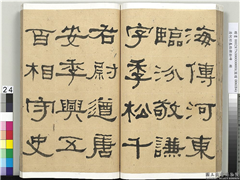 海傅河東
臨汾敬謙
字季松千
右尉遒唐
安季興五
百相守史
24